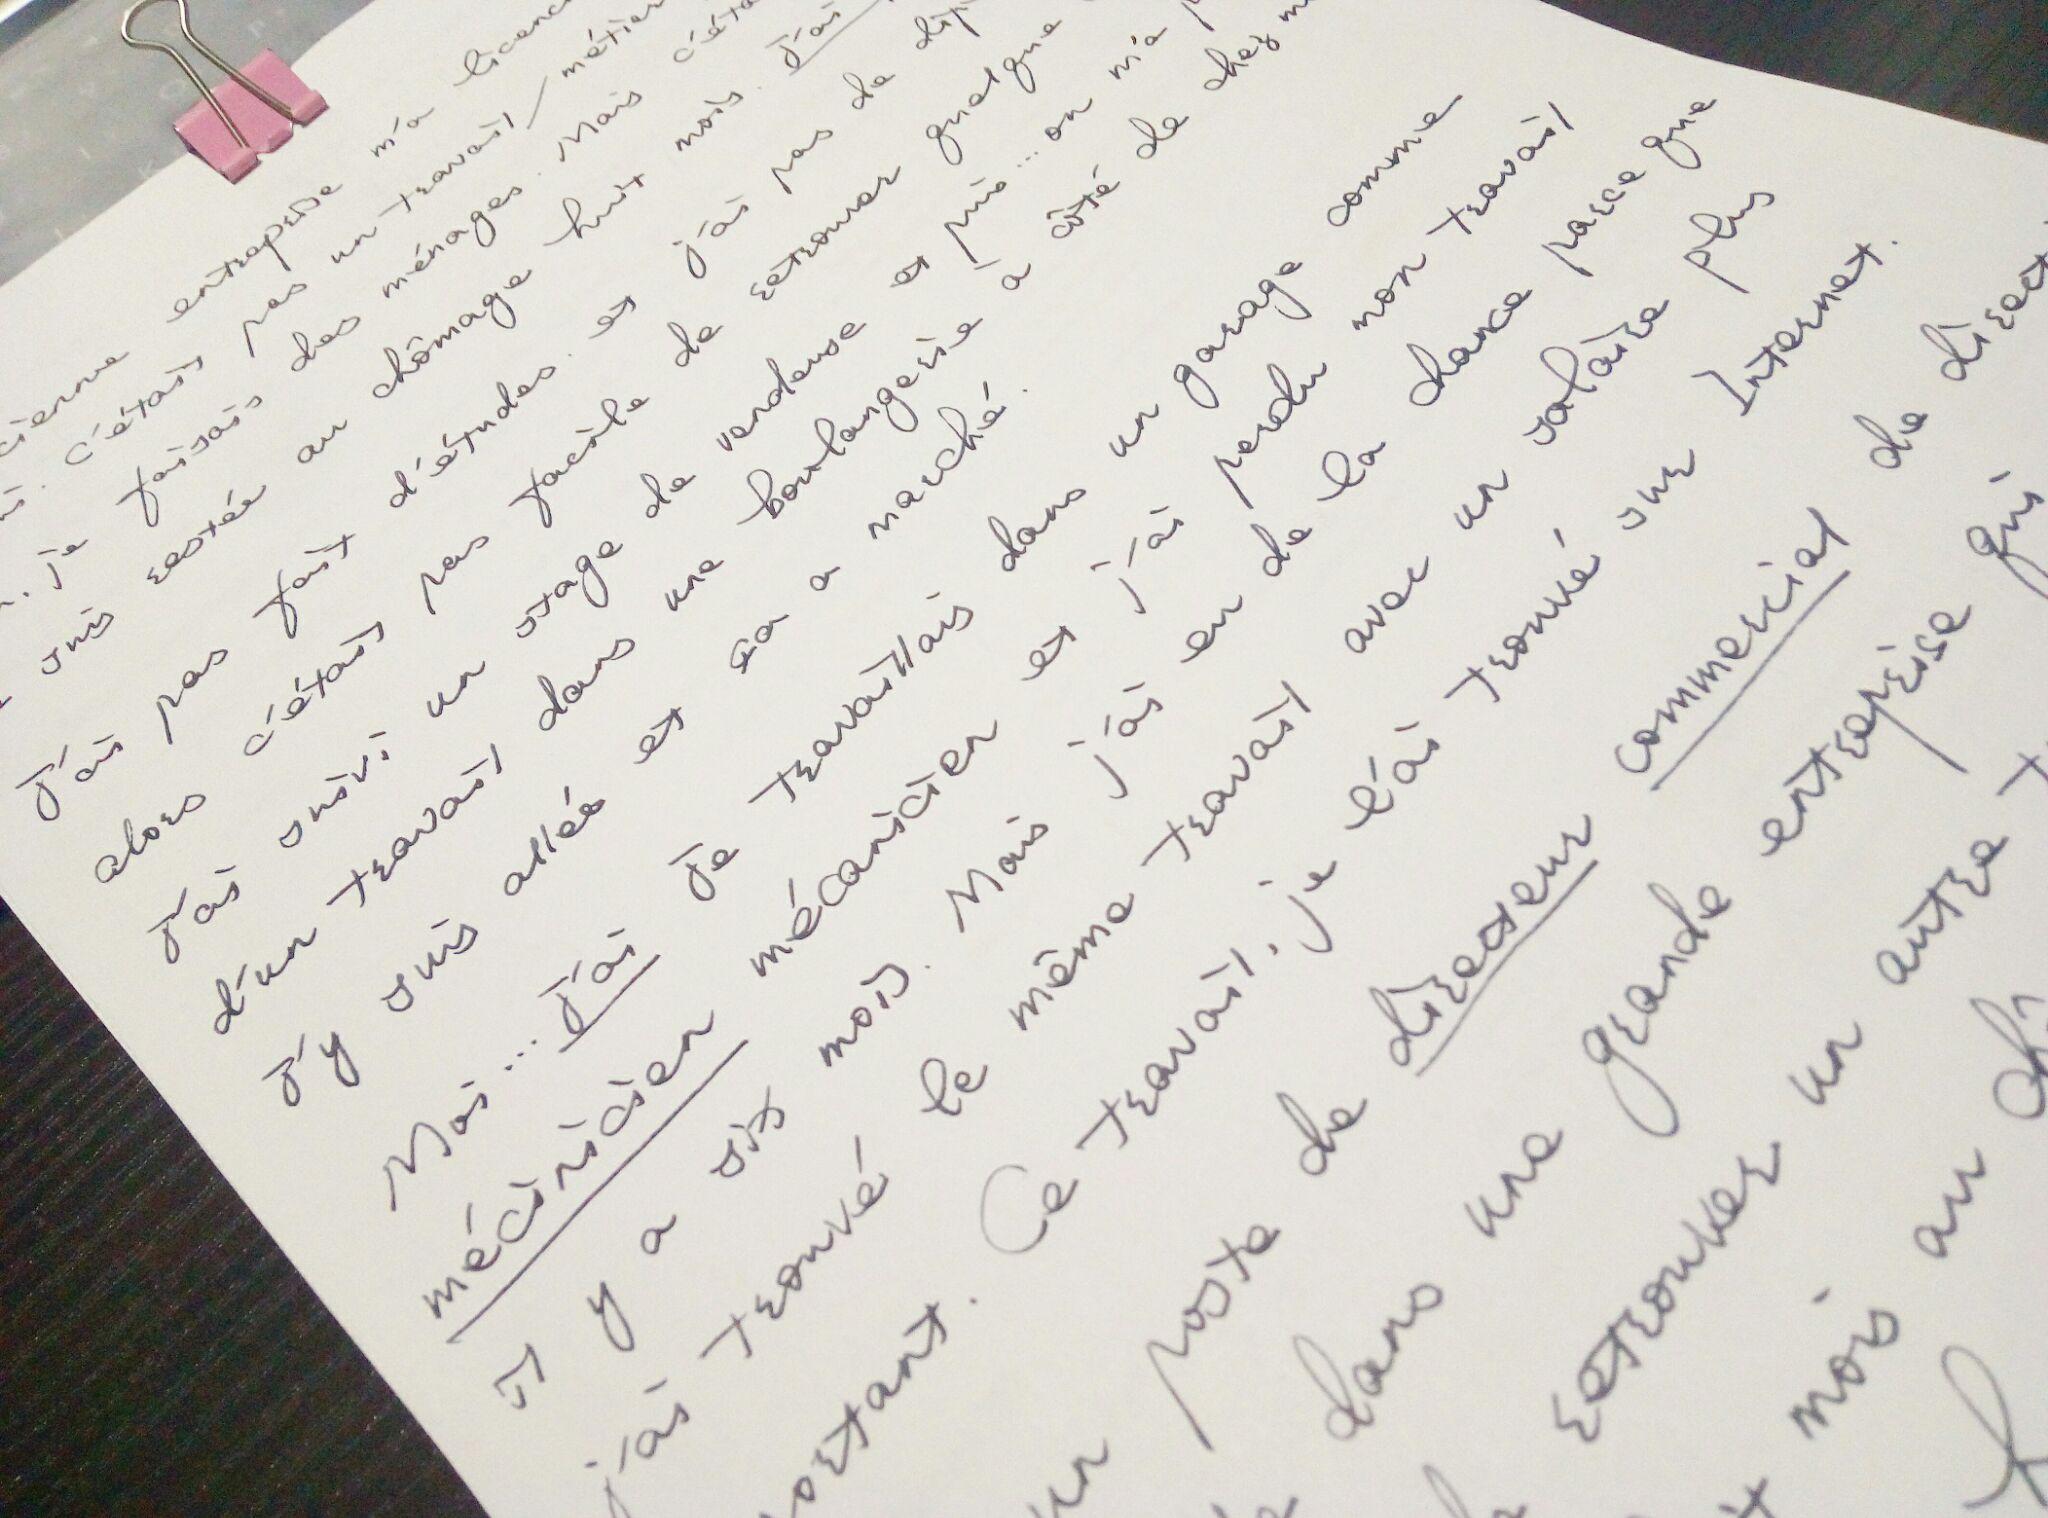 entreprise m'a
c'était pas un travail / métier
je faisais des ménages. Mais
suis restée au chômage huit mois. J'ai
J'ai pas fait d'études. et j'ai pas de
alors c'était pas facile de retrouver quelque
J'ai suivi un stage de vendeuse et puis... on m'a
d'un travail dans une boulangerie à côté de chez
J'y suis allée et ça a marché.
Moi... J'ai Je travaillais dans un garage comme
mécinicien mécanicien et j'ai perdu mon travail
il y a six mois. Mais j'ai eu de la chance parce que
j'ai trouvé le même travail avec un salaire plus
Ce travail, je l'ai trouvé sur Internet.
poste de directeur commercial de
dans une grande entreprise qui
retrouver un autre
mois au